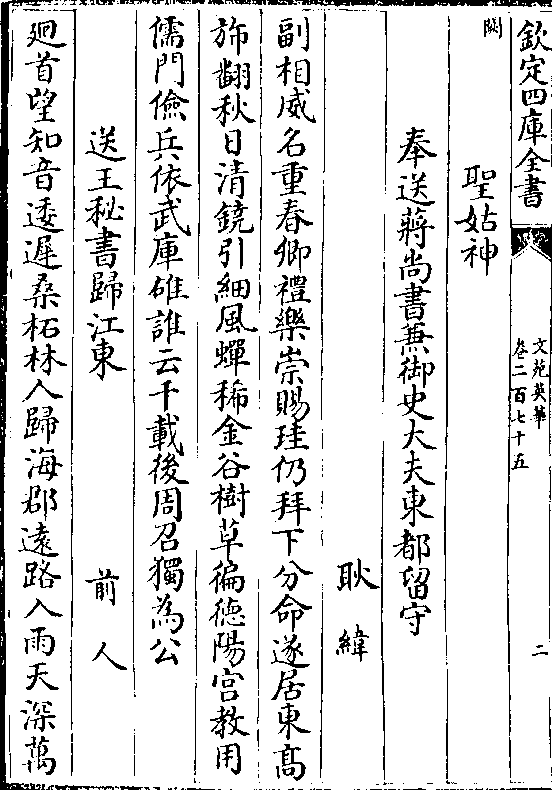 欽定四庫全書
文苑英華
卷二百七十五
二
闕
聖姑神
奉送蔣尚書兼御史大夫東都留守
耿緯
副相威名重春卿禮樂崇賜珪仍拜下分命遂居東髙
斾翻秋日清鐃引細風蟬稀金谷樹草徧德陽宮教用
儒門儉兵依武庫雄誰云千載後周召獨為公
送王秘書歸江東
前人
廻首望知音逶遲桑柘林人歸海郡遠路入雨天深萬